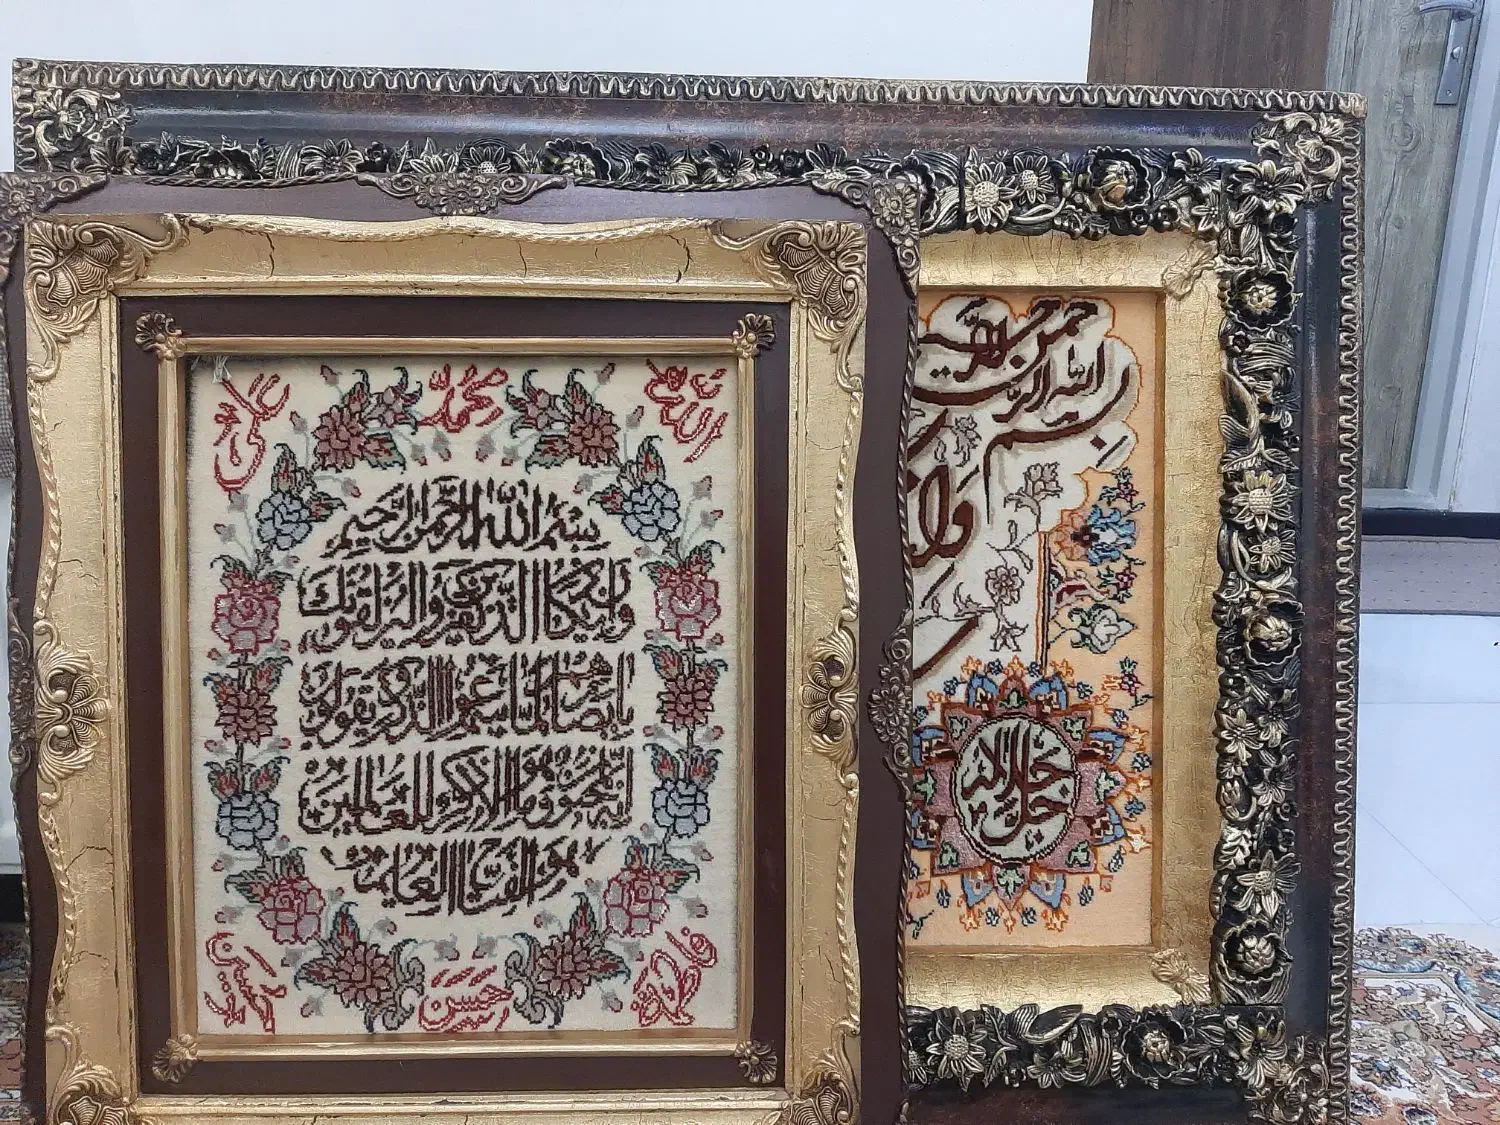 الله
محمد
علی
بسم الله الرحمن الرحیم
وان یکاد الذین کفروا لیزلقونک
بابصارهم لما سمعوا الذکر ویقولون
انه لمجنون وما هو الا ذکر للعالمین
فاطمه
حسن
حسین
بسم الله الرحمن
وان
جل جلاله